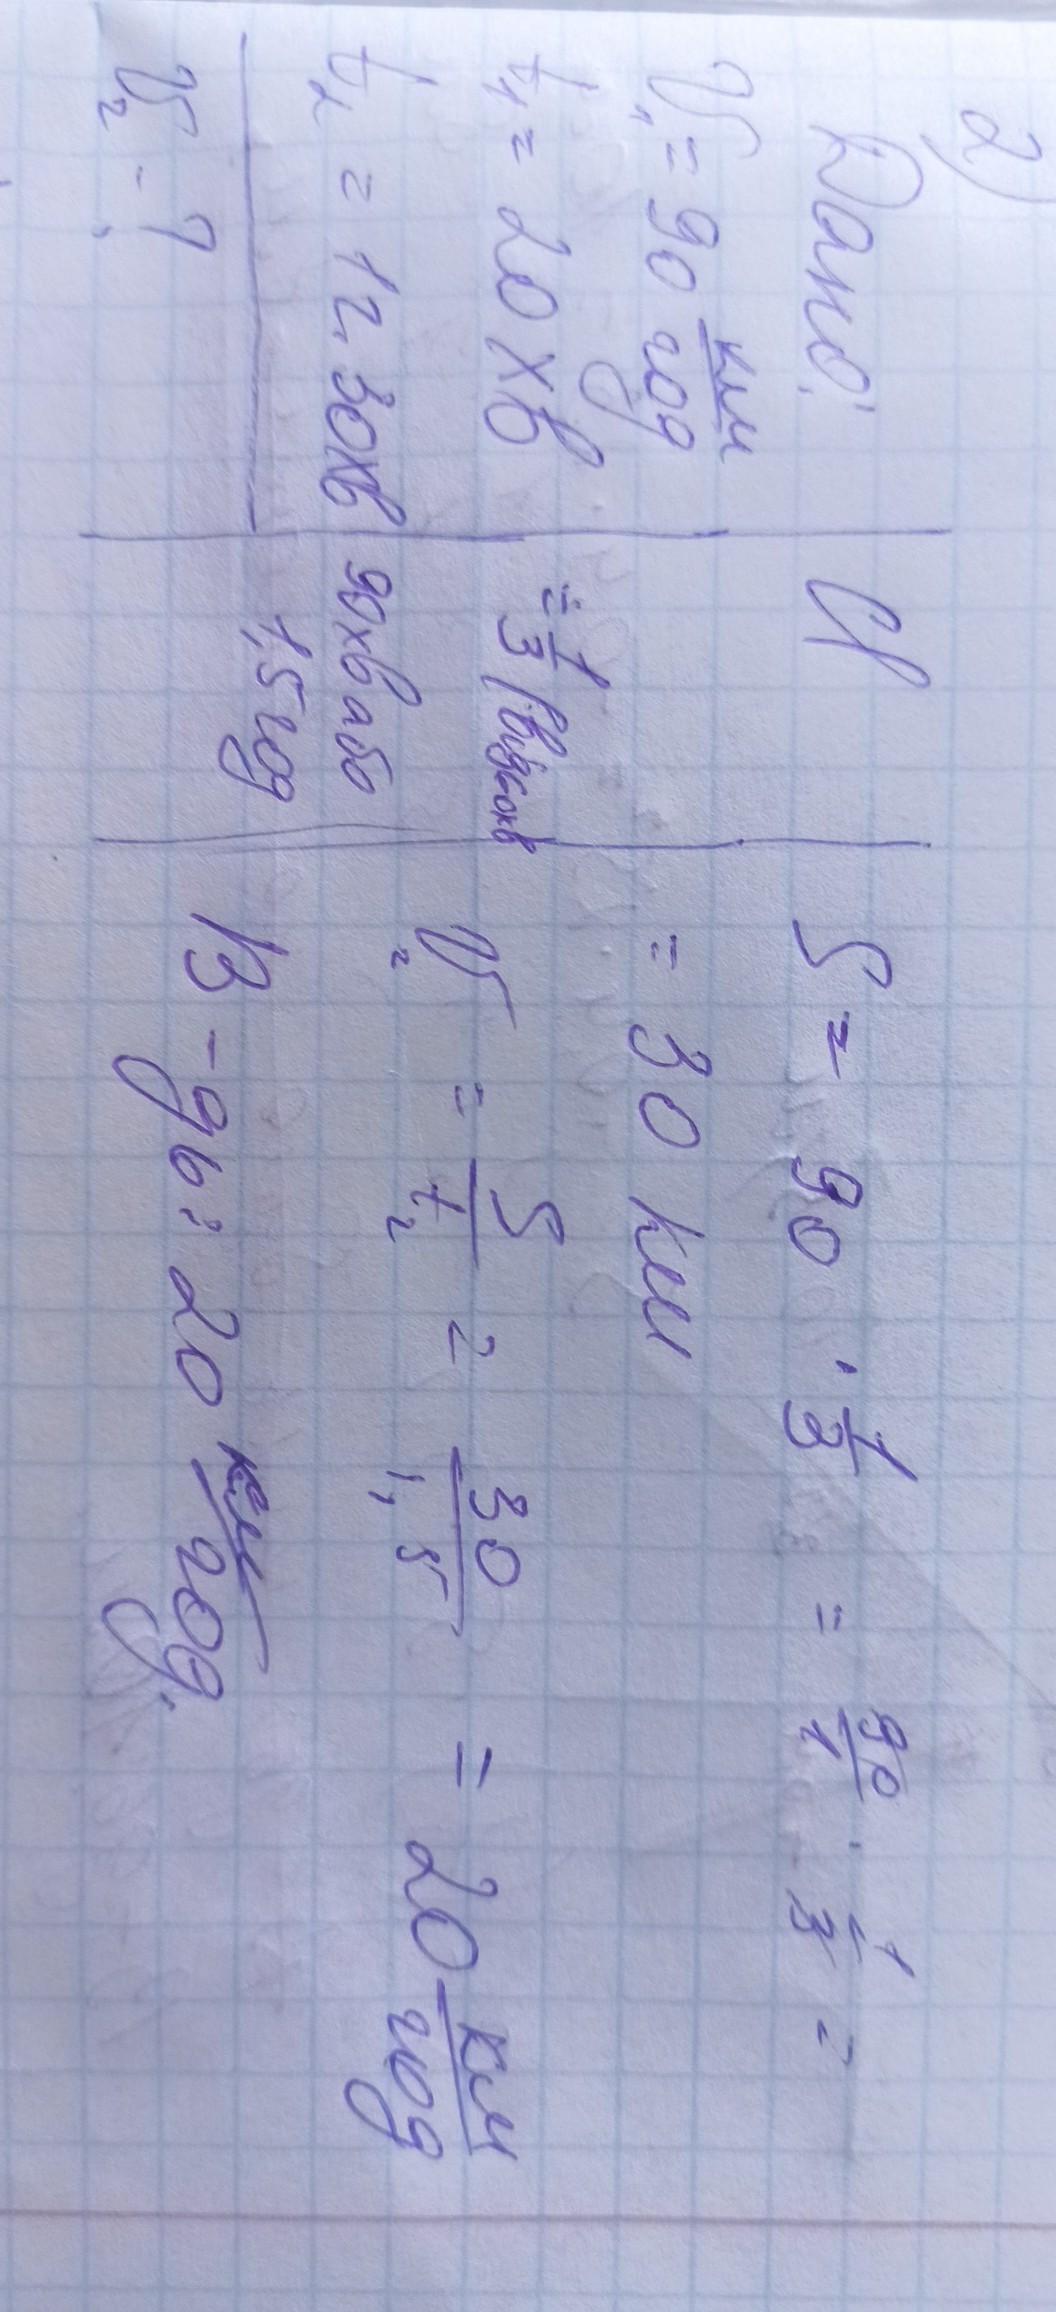 2)
Дано:
V₁ = 90 км/год
t₁ = 20 хв
t₂ = 1 г. 30хв
V₂ - ?
СІ
= 1/3 (від 60хв
90хв або
1,5 год
S = 90 · 1/3 = 90/1 · 1/3 =
= 30 км
V₂ = S/t₂ = 30/1,5 = 20 км/год
В-дь: 20 км/год.